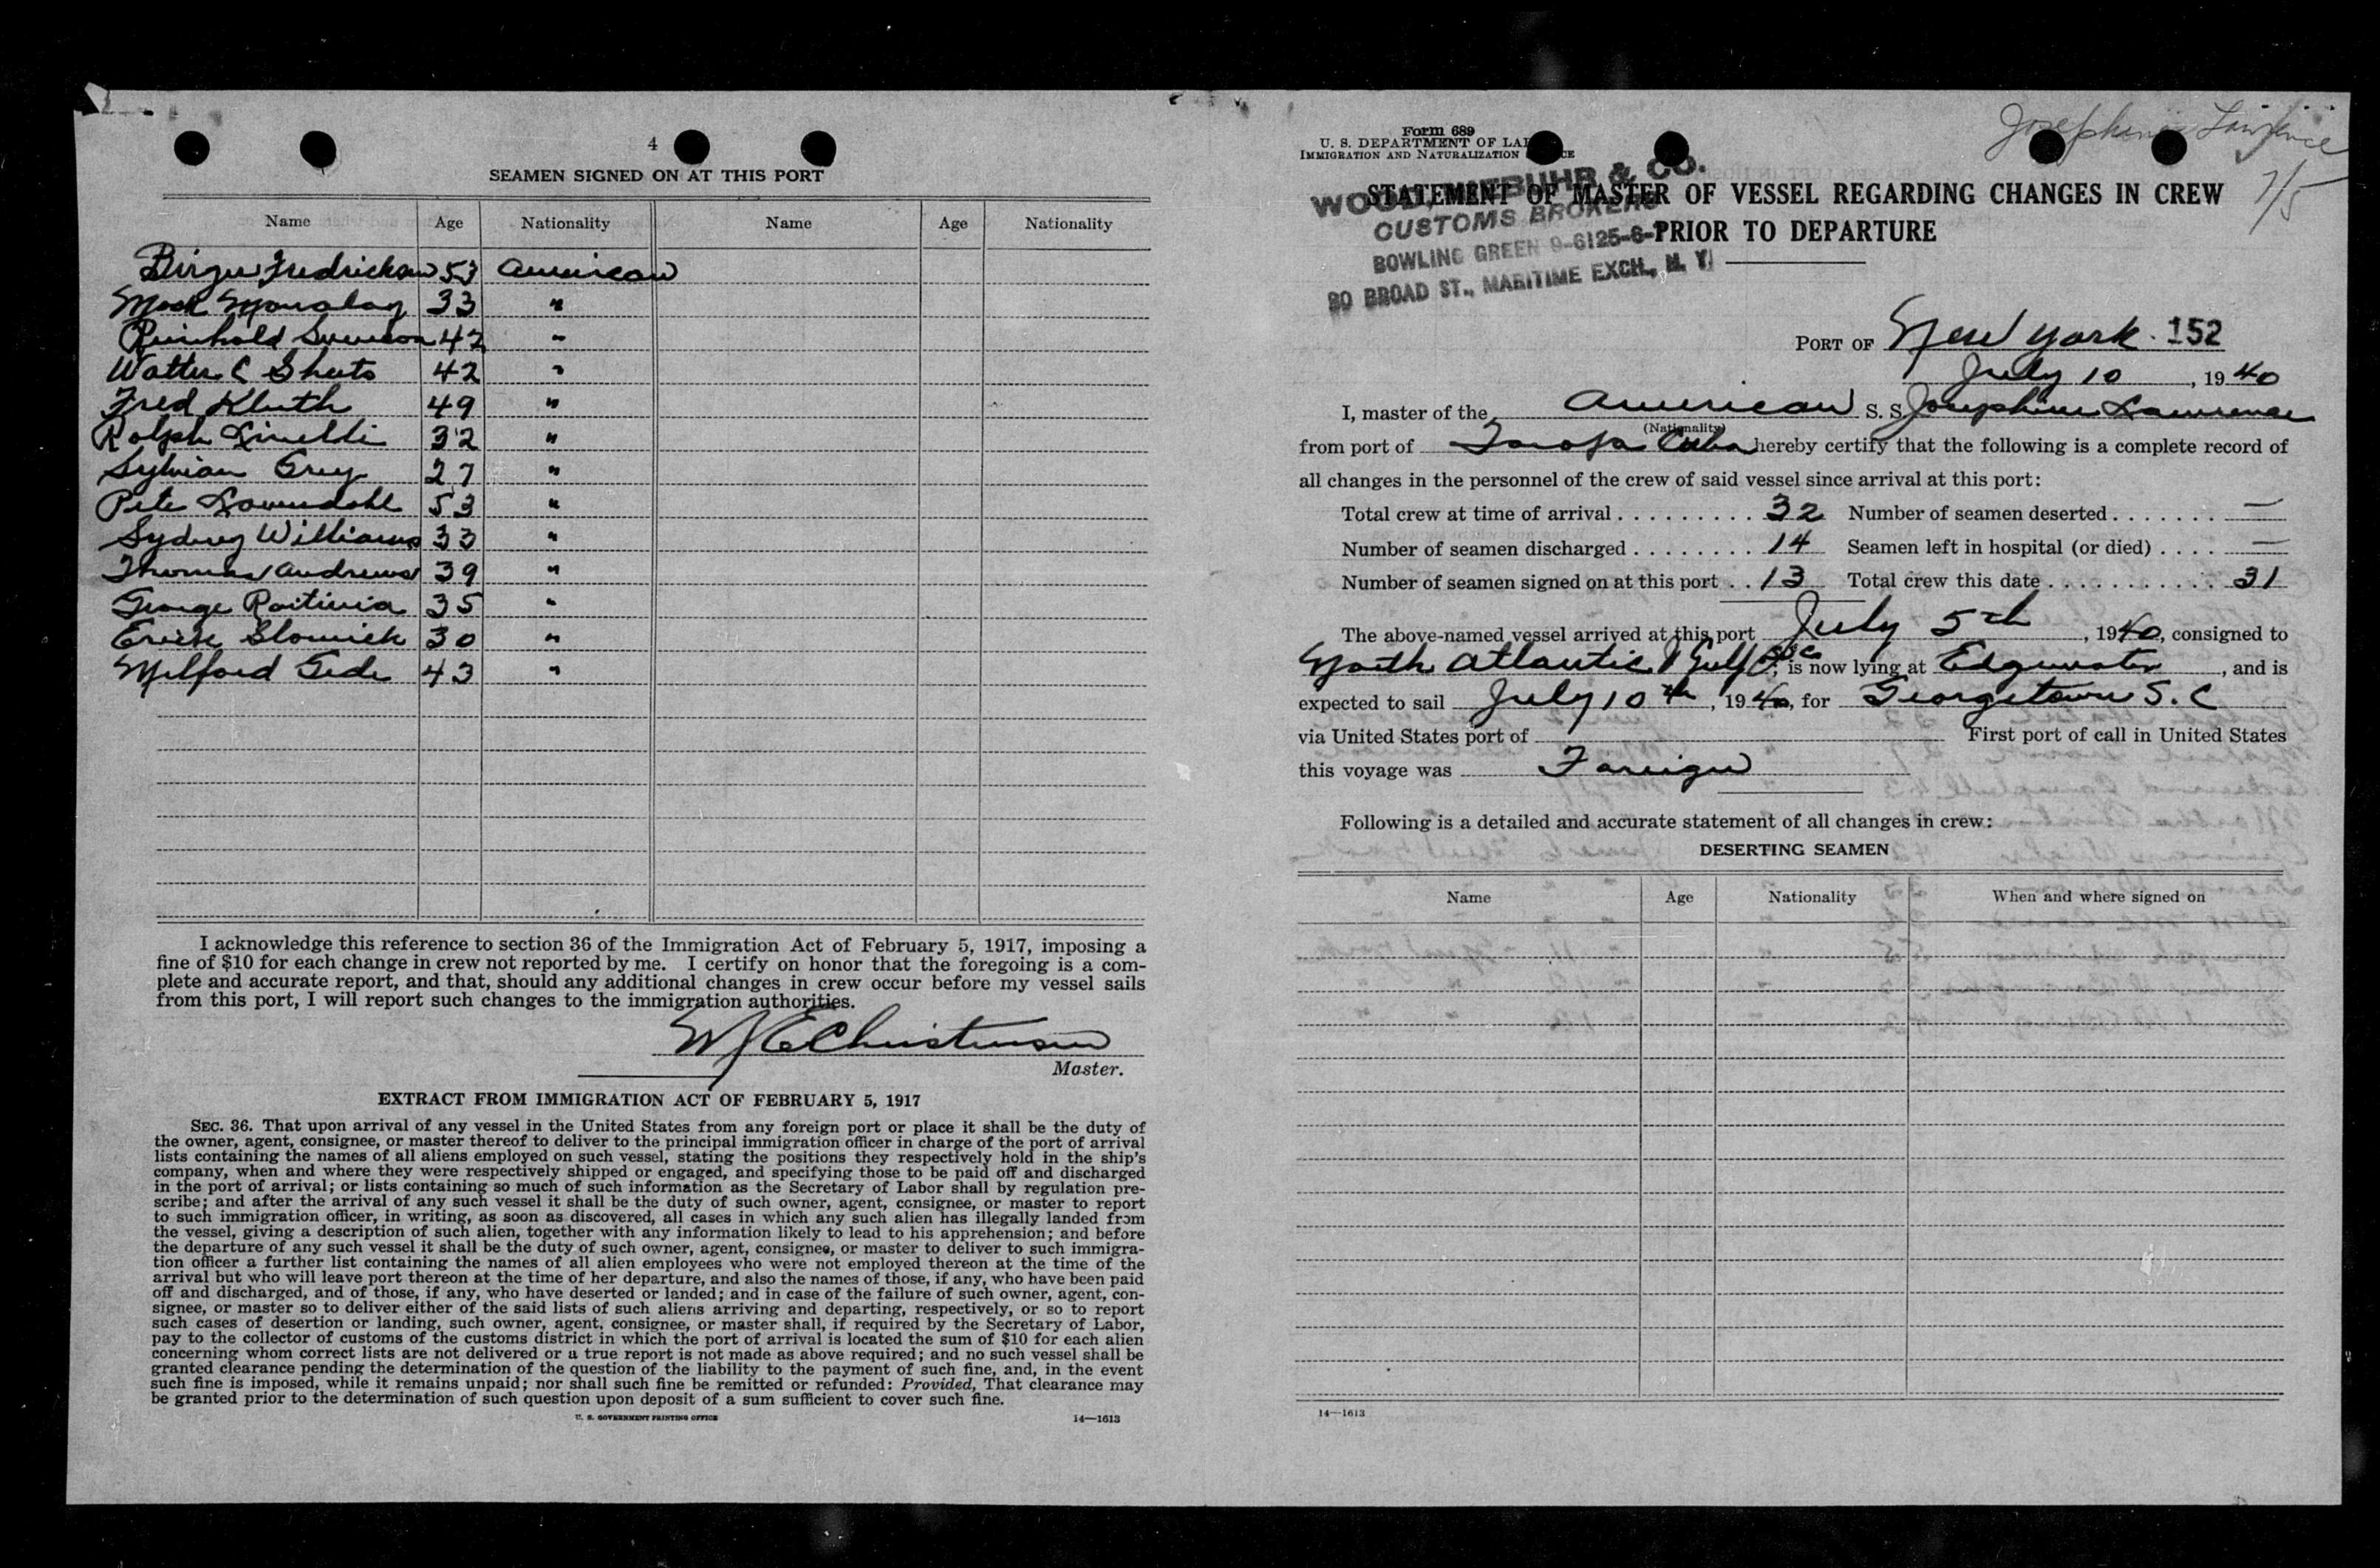 4
SEAMEN SIGNED ON AT THIS PORT
Name Age Nationality Name Age Nationality
Birger Fredrickson 53 American
33 "
Reinhold Swenson 42 "
Walter C Sheets 42 "
Fred Kluth 49 "
Ralph Linelli 32 "
Sylvian Grey 27 "
Pete 53 "
Sydney Williams 33 "
Thomas Andrews 39 "
George 35 "
Erick 30 "
Milford Gede 43 "
I acknowledge this reference to section 36 of the Immigration Act of February 5, 1917, imposing a
fine of $10 for each change in crew not reported by me. I certify on honor that the foregoing is a com-
plete and accurate report, and that, should any additional changes in crew occur before my vessel sails
from this port, I will report such changes to the immigration authorities.
Christensen
Master.
EXTRACT FROM IMMIGRATION ACT OF FEBRUARY 5, 1917
SEC. 36. That upon arrival of any vessel in the United States from any foreign port or place it shall be the duty of
the owner, agent, consignee, or master thereof to deliver to the principal immigration officer in charge of the port of arrival
lists containing the names of all aliens employed on such vessel, stating the positions they respectively hold in the ship's
company, when and where they were respectively shipped or engaged, and specifying those to be paid off and discharged
in the port of arrival; or lists containing so much of such information as the Secretary of Labor shall by regulation pre-
scribe; and after the arrival of any such vessel it shall be the duty of such owner, agent, consignee, or master to report
to such immigration officer, in writing, as soon as discovered, all cases in which any such alien has illegally landed from
the vessel, giving a description of such alien, together with any information likely to lead to his apprehension; and before
the departure of any such vessel it shall be the duty of such owner, agent, consignee, or master to deliver to such immigra-
tion officer a further list containing the names of all alien employees who were not employed thereon at the time of the
arrival but who will leave port thereon at the time of her departure, and also the names of those, if any, who have been paid
off and discharged, and of those, if any, who have deserted or landed; and in case of the failure of such owner, agent, con-
signee, or master so to deliver either of the said lists of such aliens arriving and departing, respectively, or so to report
such cases of desertion or landing, such owner, agent, consignee, or master shall, if required by the Secretary of Labor,
pay to the collector of customs of the customs district in which the port of arrival is located the sum of $10 for each alien
concerning whom correct lists are not delivered or a true report is not made as above required; and no such vessel shall be
granted clearance pending the determination of the question of the liability to the payment of such fine, and, in the event
such fine is imposed, while it remains unpaid; nor shall such fine be remitted or refunded: Provided, That clearance may
be granted prior to the determination of such question upon deposit of a sum sufficient to cover such fine.
U. S. GOVERNMENT PRINTING OFFICE 14—1613
Josephine Lawrence
7/5
Form 689
U. S. DEPARTMENT OF
IMMIGRATION AND NATURALIZATION
STATEMENT OF MASTER OF VESSEL REGARDING CHANGES IN CREW
PRIOR TO DEPARTURE
& CO.
CUSTOMS BROKERS
BOWLING GREEN 9-6125-6-7
80 BROAD ST., MARITIME EXCH., N. Y.
PORT OF New York 152
July 10, 1940
I, master of the American S. S. Josephine Lawrence
(Nationality)
from port of Tarafa Cuba hereby certify that the following is a complete record of
all changes in the personnel of the crew of said vessel since arrival at this port:
Total crew at time of arrival 32 Number of seamen deserted —
Number of seamen discharged 14 Seamen left in hospital (or died) —
Number of seamen signed on at this port 13 Total crew this date 31
The above-named vessel arrived at this port July 5th, 1940, consigned to
North Atlantic & Gulf SS Co, is now lying at Edgewater, and is
expected to sail July 10th, 1940, for Georgetown S. C
via United States port of First port of call in United States
this voyage was Foreign
Following is a detailed and accurate statement of all changes in crew:
DESERTING SEAMEN
Name Age Nationality When and where signed on
14—1613